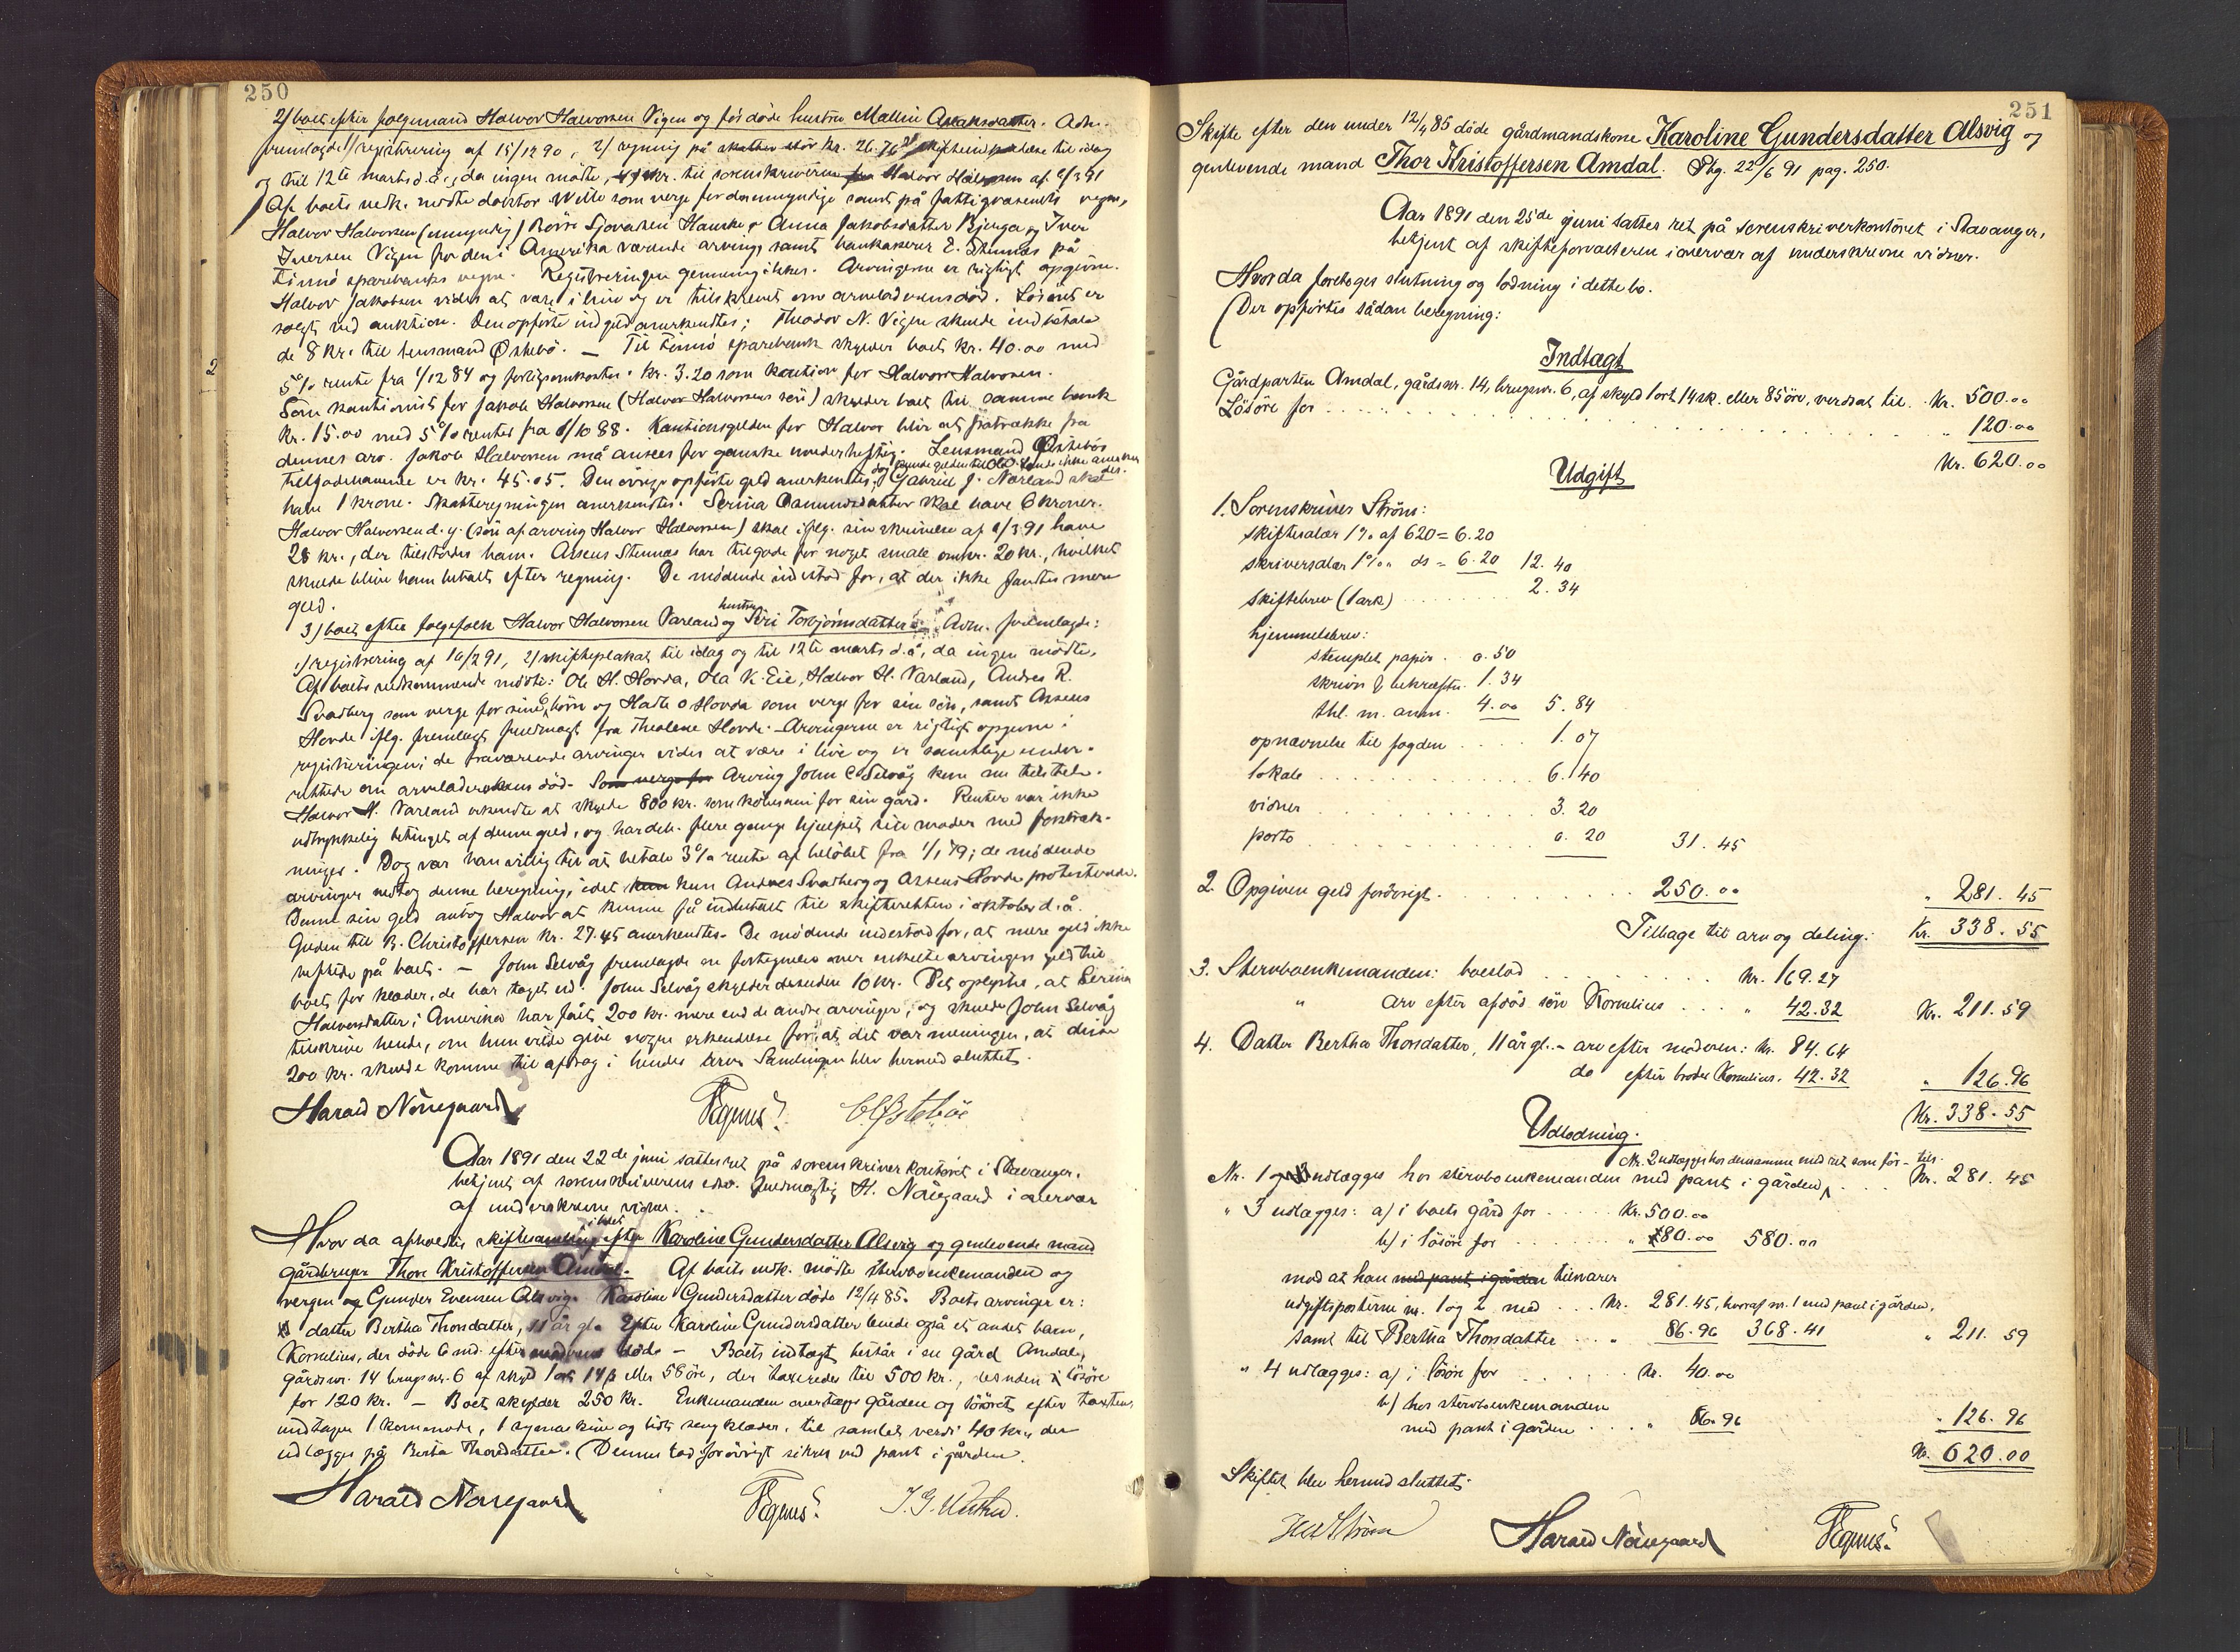 250
2/ boet efter folgemand Halvor Halvorsen Vigen og för döde hustru Mallin Asaksdatter. Adm.
fremlagde 1/ registrering af 15/12 90, 2/ regning på skatter stör kr. 26.76 skiftesamling til idag
og til 12te marts d.å., da ingen mödte, 4/ kr. til sorenskriveren fra Halvor Halvorsen af 2/3 91
Af boets vedk. mödte doktor Wille som verge for den umyndige samt på fattigvæsenets vegne,
Halvor Halvorsen (umyndig) Börre Sjovarsen Hauske og Anna Jakobsdatter Bjerga og Iver
Iversen Vigen for den i Amerika værende arving, samt bankkasserer E. Stennæs på
Finnö sparebanks vegne. Registreringen gjennemgikkes. Arvingerne er rigtigt opgivne.
Halvor Jakobsen vides at være i live og er tilskrevet om arveladerens död. Lösöret er
solgt ved auktion. Den opförte indgjeld anerkjendtes; Theodor N. Vigen skulde indbetale
de 8 kr. til lensmand Østebö. — Til Finnö sparebank skylder boet kr. 40.00 med
5% rente fra 1/12 84 og forligsomkostn. kr. 3.20 som kaution for Halvor Halvorsen.
Som kautionist for Jakob Halvorsen (Halvor Halvorsens sön) skylder boet til samme bank
kr. 15.00 med 5% renter fra 1/10 88. Kautionsgjelden for Halvor blir at fratrække fra
dennes arv. Jakob Halvorsen må ansees for ganske uvederheftig. Lensmand Østebös
tilgodehavende er kr. 45.05. Den övrige opförte gjeld anerkjendtes, Gabriel J. Nærland skal
have 1 krone. Skatteregningen anerkjendtes. Serina Osmundsdatter skal have 6 kroner.
Halvor Halvorsen d.y. (sön af arving Halvor Halvorsen) skal iflg. sin skrivelse af 2/3 91 have
28 kr., der tilstodes ham. Asseus Stennæs har tilgode for noget smale omkr. 20 kr., hvilket
skulde blive ham betalt efter regning. De mödende indestod for, at der ikke fandtes mere
gjeld.
3/ boet efter folgefolk Halvor Halvorsen Varland og hustru Siri Torbjörnsdatter. Adm. fremlagde:
1/ registrering af 16/2 91, 2/ skifteplakat til idag og til 12te marts d.å., da ingen mödte.
Af boets vedkommende mödte: Ole H. Hovda, Ola K. Eie, Halvor H. Varland, Andres R.
Svadberg som verge for sine 6 börn og Hadle O Hovda som verge for sin sön, samt Asseus
Hovde iflg. fremlagt fuldmagt fra Theoline Hovde. Arvingerne er rigtigt opgivne i
registreringen; de fraværende arvinger vides at være i live og er samtlige under-
rettede om arveladerskens död. Som verge for Arving John C Selvåg kom nu tilstede.
Halvor H. Varland erkjendte at skylde 800 kr. som kobesum for sin gård. Renter var ikke
udtrykkelig betinget af denne gjeld, og han deh. flere gange hjulpet sine moder med forstræk-
ninger. Dog var han villig til at betale 3% rente af belöbet fra 1/1 79; de mödende
arvinger vedtog denne beregning, idet kun kun Andres Svadberg og Asseus Hovde protesterede.
Denne sin gjeld antog Halvor at kunne få indbetalt til skifteretten i oktober d.å.
Gjelden til B. Christoffersen kr. 27.45 anerkjendtes. De mödende indestod for, at mere gjeld ikke
heftede på boet. — John Selvåg fremlagde en fortegnelse over enkelte arvingers gjeld til
boet for klæder, de har taget ud. John Selvåg skylder desuden 10 kr. Det oplystes, at Serina
Halvorsdatter i Amerika har fået 200 kr. mere end de andre arvinger, og skulde John Selvåg
tilskrive hende, om hun vilde give nogen erkjendelse for, at det var meningen, at disse
200 kr. skulde komme til afdrag i hendes arv. Samlingen blev hermed sluttet.
Harald Nörregaard
Aar 1891 den 22de juni sattes ret på sorenskriverkontoret i Stavanger,
betjent af sorenskriverens edsv. fuldmægtig H. Nörregaard i overvær
af underskrevne vidner.
Hvor da afholdtes skiftesamling i boet efter Karoline Gundersdatter Alsvig og gjenlevende mand
gårdbruger Thor Kristoffersen Amdal. Af boets vedk. mödte sterboenkemanden og
vergen Gunder Evensen Alsvig. Karoline Gundersdatter döde 12/4 85. Boets arvinger er:
datter Bertha Thorsdatter, 11 år gl. Efter Karoline Gundersdatter levede også et andet barn,
Kornelius, der döde 6 md. efter moderens död. — Boets indtægt består i en gård Amdal,
gårdsnr. 14 brugsnr. 6 af skyld 1 ort 14 β eller 58 öre, der taxeredes til 500 kr., desuden i lösöre
for 120 kr. — Boet skylder 250 kr. Enkemanden overtager gården og lösöret efter taxten,
undtagen 1 kommode, 1 symaskine og lidt sengklæder, til samlet verdi 40 kr., der
udlægges på Berta Thorsdatter. (Dennes lod forövrigt sikres ved pant i gården.
Harald Nörregaard
251
Skifte efter den under 12/4 85 döde gårdmandskone Karoline Gundersdatter Alsvig og
gjenlevende mand Thor Kristoffersen Amdal. Fhg. 22/6 91 pag. 250.
Aar 1891 den 25de juni sattes ret på sorenskriverkontoret i Stavanger,
betjent af skifteforvalteren i overvær af underskrevne vidner.
Hvor da foretoges slutning og lodning i dette bo.
(Der opförtes sådan beregning:
Indtægt
Gårdparten Amdal, gårdsnr. 14, brugsnr. 6, af skyld 1 ort 14 sk. eller 85 öre, verdsat til . Kr. 500.00
Lösöre for . . . . " 120.00
Kr. 620.00
Udgift
1. Sorenskriver Ström:
skiftesalær 1% af 620 = 6.20
skriversalær 1% " ds = 6.20 12.40
skiftebrev (1 ark) . . . . 2.34
hjemmelsbrev:
stemplet papir . 0.50
skrivn. & bekræftn. 1.34
thl. m. anm. 4.00 5.84
opnævnelse til fogden . . . . 1.07
lokale . . . . 6.40
vidner . . . . 3.20
porto . . . . 0.20 31.45
2. Opgiven gjeld forövrigt . . . . 250.00 " 281.45
Tilbage til arv og deling: Kr. 338.55
3. Stervboenkemanden: boeslod . . . . Kr. 169.27
" arv efter afdöd sön Kornelius . . . " 42.32 Kr. 211.59
4. Datter Bertha Thorsdatter, 11 år gl. - arv efter moderen: Kr. 84.64
do efter broder Kornelius. 42.32 " 126.96
Kr. 338.55
Udlodning.
Nr. 2 udlægges hos densamme med ret som för- tils.
Nr. 1 udlægges hos stervboenkemanden med pant i gården . . . Kr. 281.45
" 3 udlægges: a) i boets gård for . . . . Kr. 500.00
b) i lösöre for . . . . " 80.00 580.00
mod at han med pant i gården tilsvarer
udgiftsposterne nr. 1 og 2 med . . . Kr. 281.45, hvoraf nr. 1 med pant i gården,
samt til Bertha Thorsdatter . . . " 86.96 368.41 " 211.59
" 4 udlægges: a) i lösöre for . . . . Kr. 40.00
b) hos stervboenkemanden
med pant i gården . . . . " 86.96 " 126.96
Kr. 620.00
Skiftet blev hermed sluttet.
Harald Nörregaard